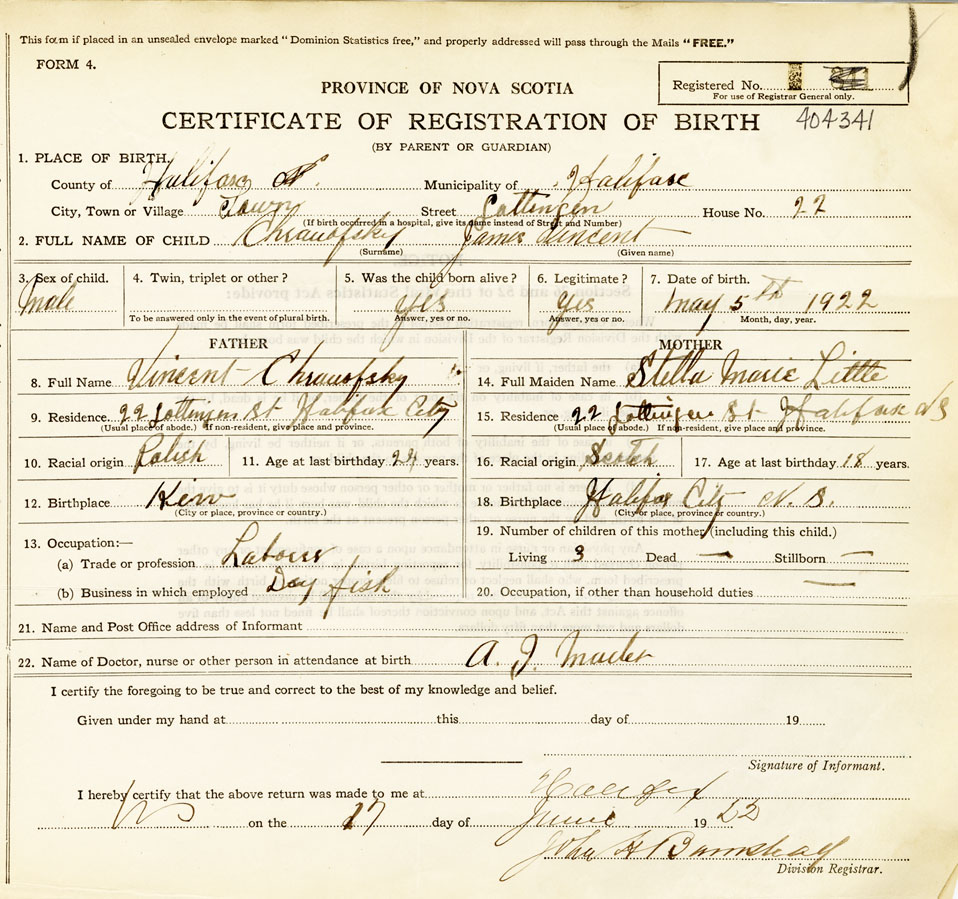 This form if placed in an unsealed envelope marked "Dominion Statistics free," and properly addressed will pass through the Mails "FREE."
FORM 4.
Registered No.
For use of Registrar General only.
PROVINCE OF NOVA SCOTIA
CERTIFICATE OF REGISTRATION OF BIRTH 404341
(BY PARENT OR GUARDIAN)
1. PLACE OF BIRTH.
County of Halifax Municipality of Halifax
City, Town or Village Town Street Gottingen House No. 22
(If birth occurred in a hospital, give its name instead of Street and Number)
2. FULL NAME OF CHILD Chranofsky James Vincent
(Surname) (Given name)
3. Sex of child. 4. Twin, triplet or other? 5. Was the child born alive? 6. Legitimate? 7. Date of birth.
Male yes yes May 5th 1922
To be answered only in the event of plural birth. Answer, yes or no. Answer, yes or no. Month, day, year.
FATHER MOTHER
8. Full Name Vincent Chranofsky 14. Full Maiden Name Stella Marie Little
9. Residence. 22 Gottingen St Halifax City 15. Residence 22 Gottingen St Halifax NS
(Usual place of abode.) If non-resident, give place and province. (Usual place of abode.) If non-resident, give place and province.
10. Racial origin Polish 11. Age at last birthday 24 years. 16. Racial origin Scotch 17. Age at last birthday 18 years.
12. Birthplace Kiew 18. Birthplace Halifax City N. S.
(City or place, province or country.) (City or place, province or country.)
13. Occupation:— 19. Number of children of this mother (including this child.)
(a) Trade or profession Labour Living 3 Dead — Stillborn —
(b) Business in which employed Day fish 20. Occupation, if other than household duties —
21. Name and Post Office address of Informant
22. Name of Doctor, nurse or other person in attendance at birth A. J. Mader
I certify the foregoing to be true and correct to the best of my knowledge and belief.
Given under my hand at this day of 19
Signature of Informant.
I hereby certify that the above return was made to me at Halifax
NS on the 17 day of June 1922
John H Barnstead
Division Registrar.